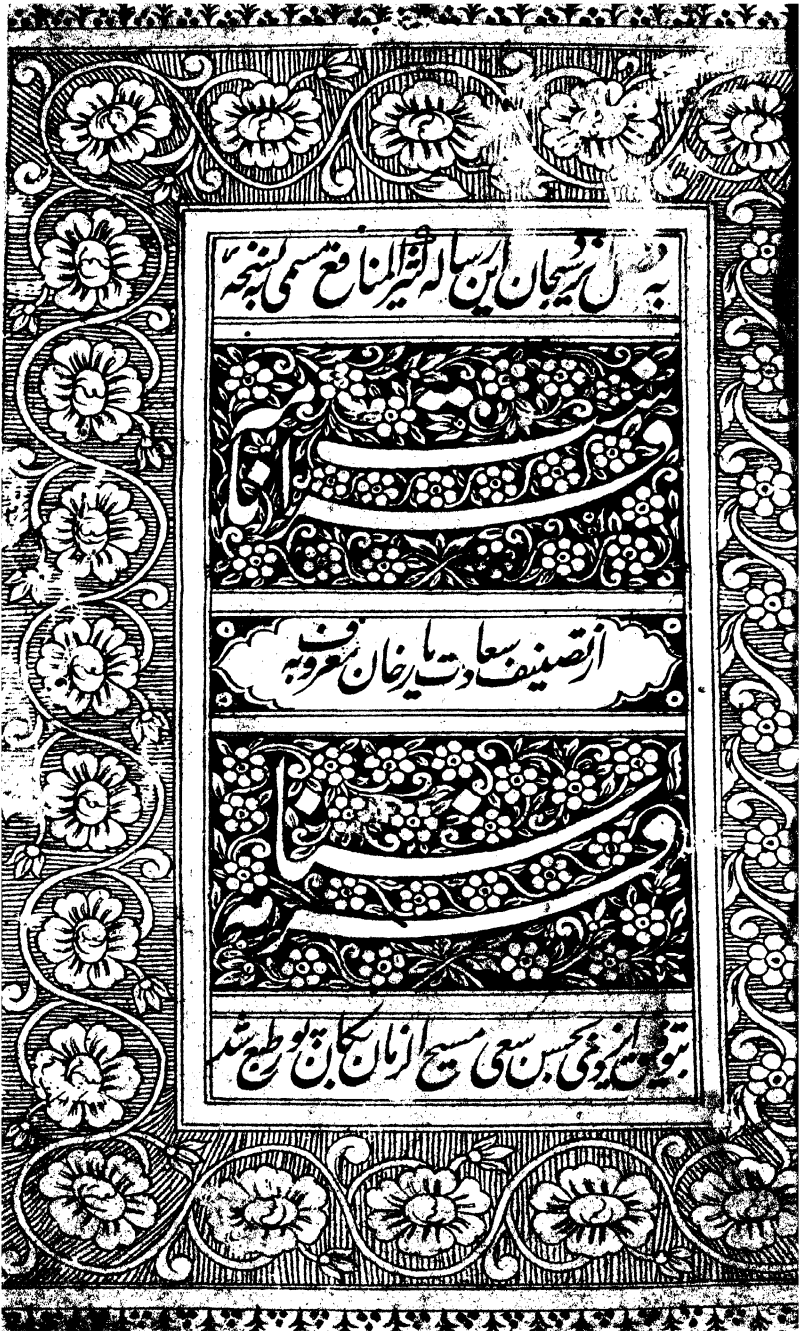 به ایزد سبحان این رساله کثیر المنافع مسمی به نسخهٔ
فراست نامه
از تصنیف سعادت یار خان معروف به
فرسنامه
بتوفیق ایزدی بحسن سعی مسیح الزمان بکانپور طبع شد